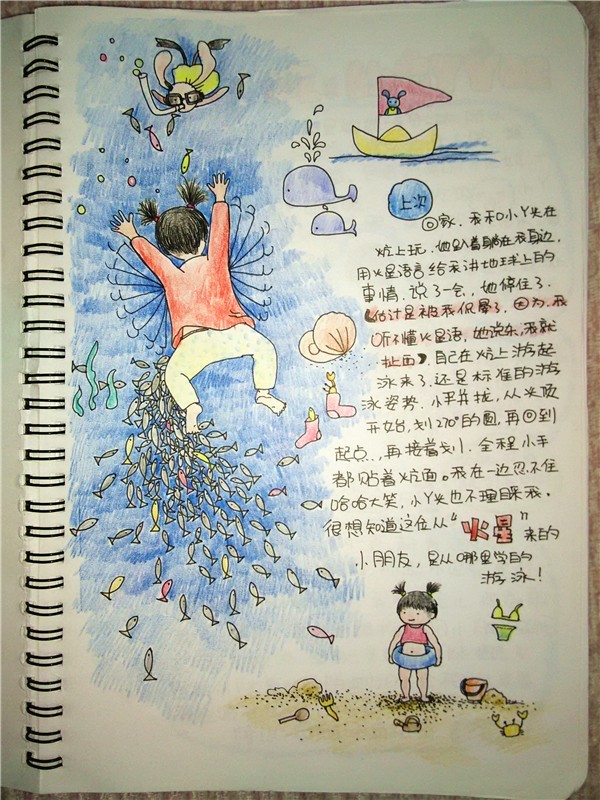 上次
回家.我和小丫头在
炕上玩.她趴着躺在我身边,
用火星语言给我讲地球上的
事情.说了一会,她停住了.
(估计是被我侃晕了,因为.我
听不懂火星语,她说东,我就
扯西)自己在炕上游起
泳来了.还是标准的游
泳姿势.小手并拢,从头顶
开始,划270°的圆,再回到
起点.,再接着划.全程小手
都贴着炕面。我在一边忍不住
哈哈大笑,小丫头也不理睬我.
很想知道这位从“火星”来的
小朋友,是从哪里学的
游泳!